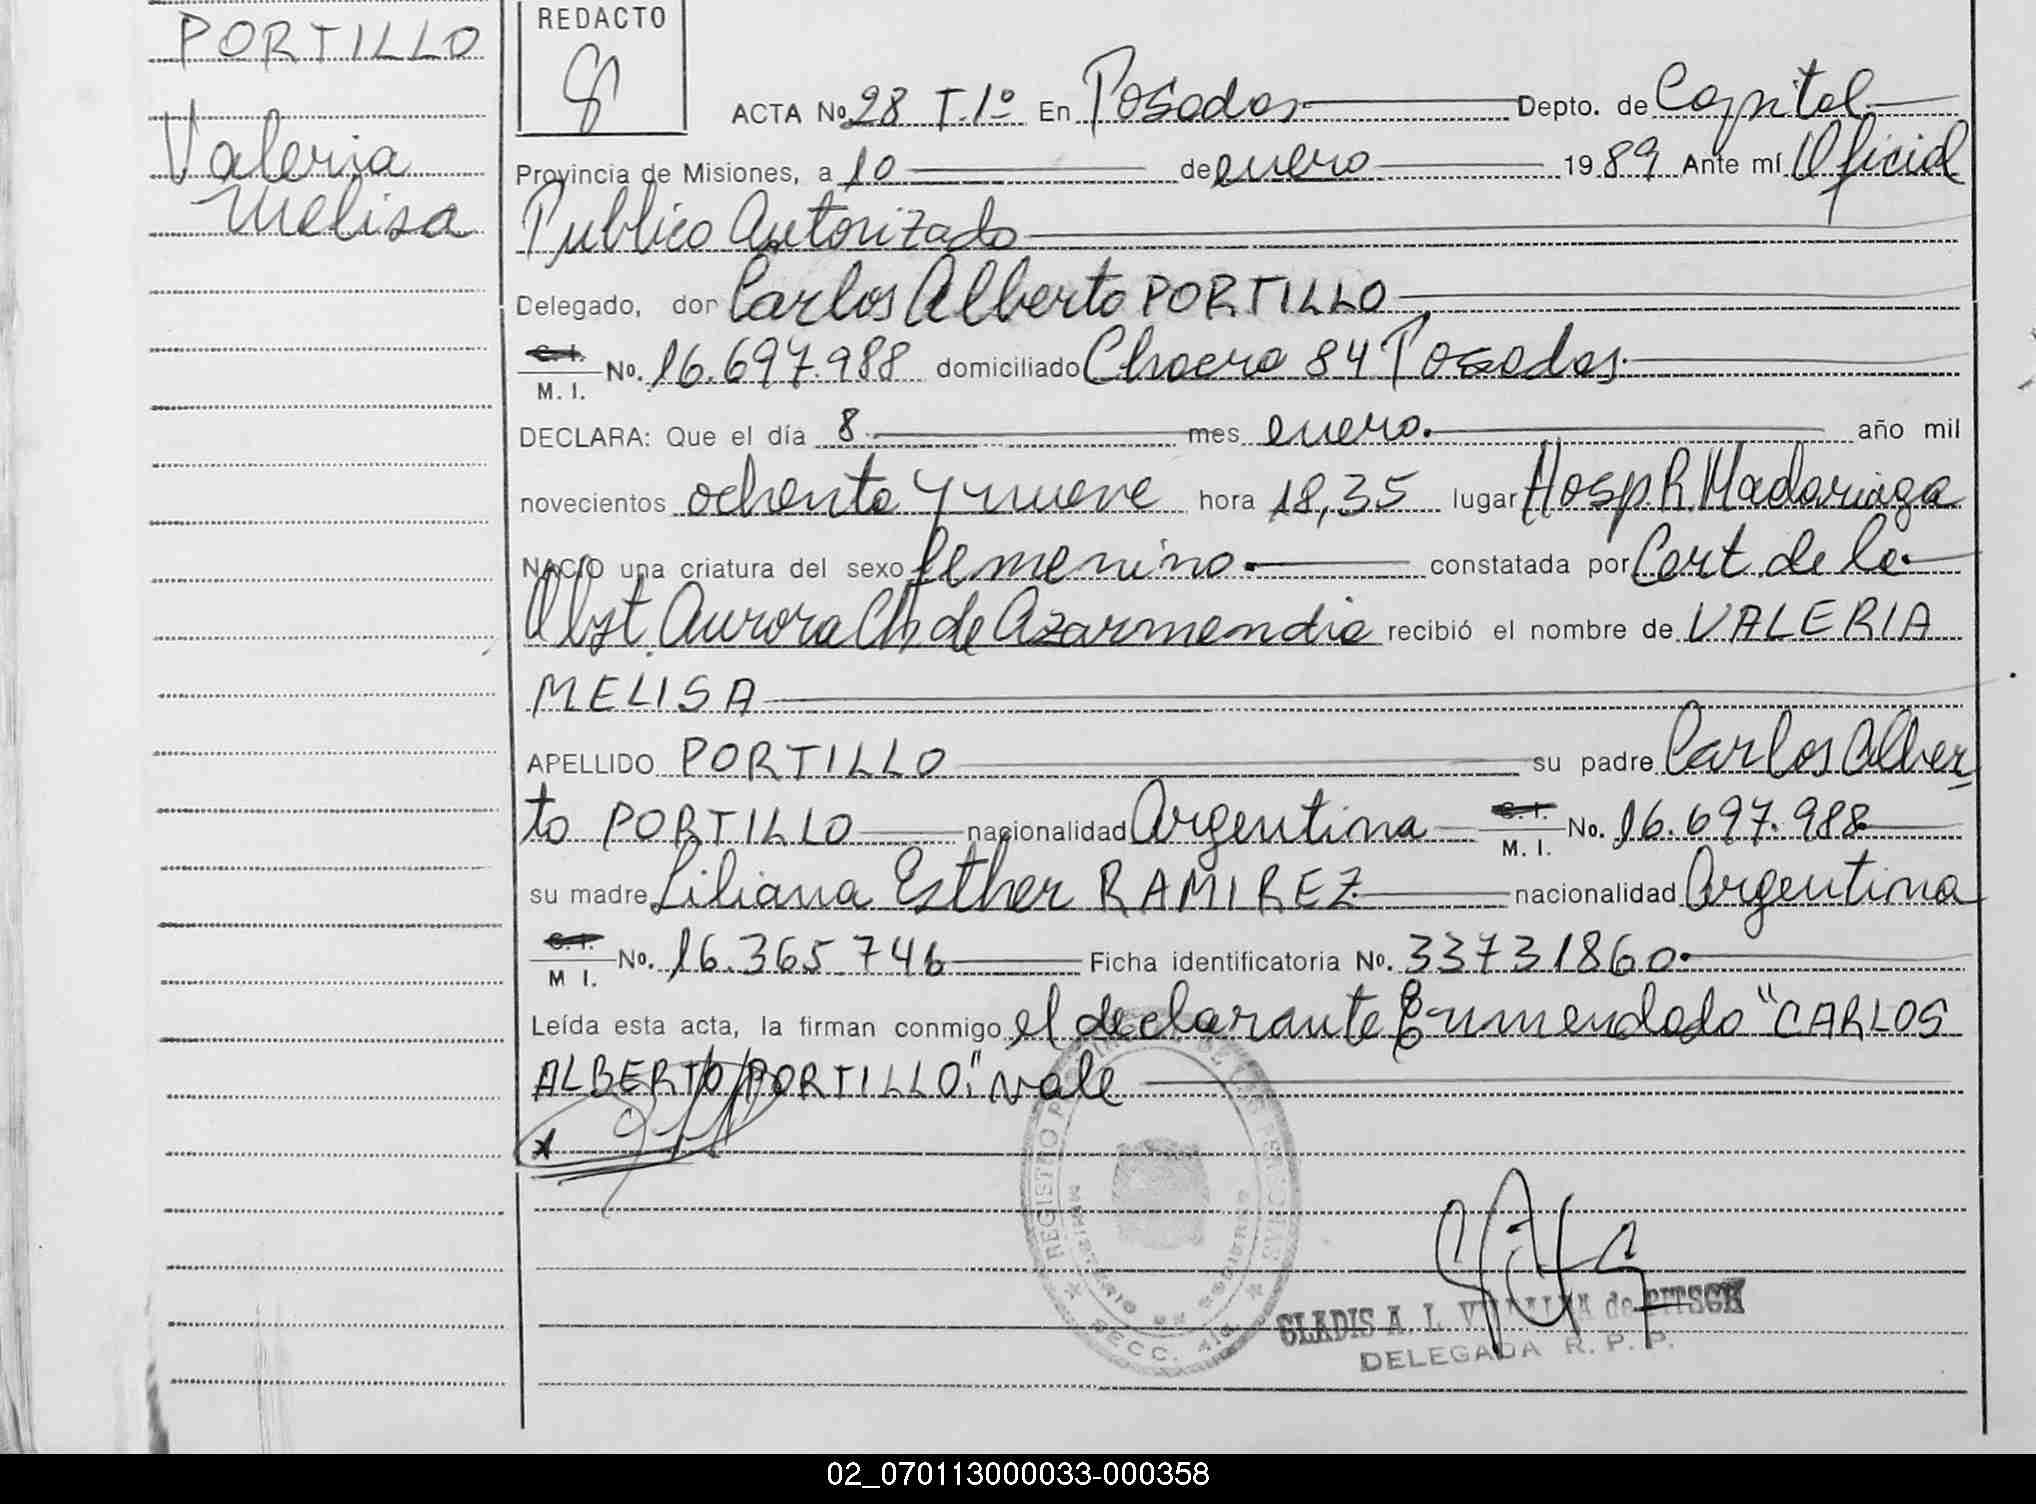 PORTILLO
Valeria
Melisa
REDACTO
ACTA No. 28 T.1º En Posadas Depto. de Capital
Provincia de Misiones, a 10 de enero 1989 Ante mí Oficial
Publico Autorizado
Delegado, don Carlos Alberto PORTILLO
C.I. M. I. No. 16.697.988 domiciliado Chacra 84 Posadas
DECLARA: Que el día 8 mes enero. año mil
novecientos ochenta y nueve hora 18,35 lugar Hosp. R. Madariaga
NACIO una criatura del sexo femenino constatada por Cert. de la
Obst. Aurora Ch. de Azarmendia recibió el nombre de VALERIA
MELISA
APELLIDO PORTILLO su padre Carlos Alber
to PORTILLO nacionalidad Argentina C.I. M. I. No. 16.697.988
su madre Liliana Esther RAMIREZ nacionalidad Argentina
C.I. M I. No. 16.365.746 Ficha identificatoria No. 33731860
Leída esta acta, la firman conmigo el declarante Enmendado "CARLOS
ALBERTO PORTILLO:" vale
REGISTRO PROVINCIAL DE LAS PERSONAS
MINISTERIO DE GOBIERNO
SECC. 4ta
GLADIS A. L. de PITSCH
DELEGADA R. P. P.
02_070113000033-000358